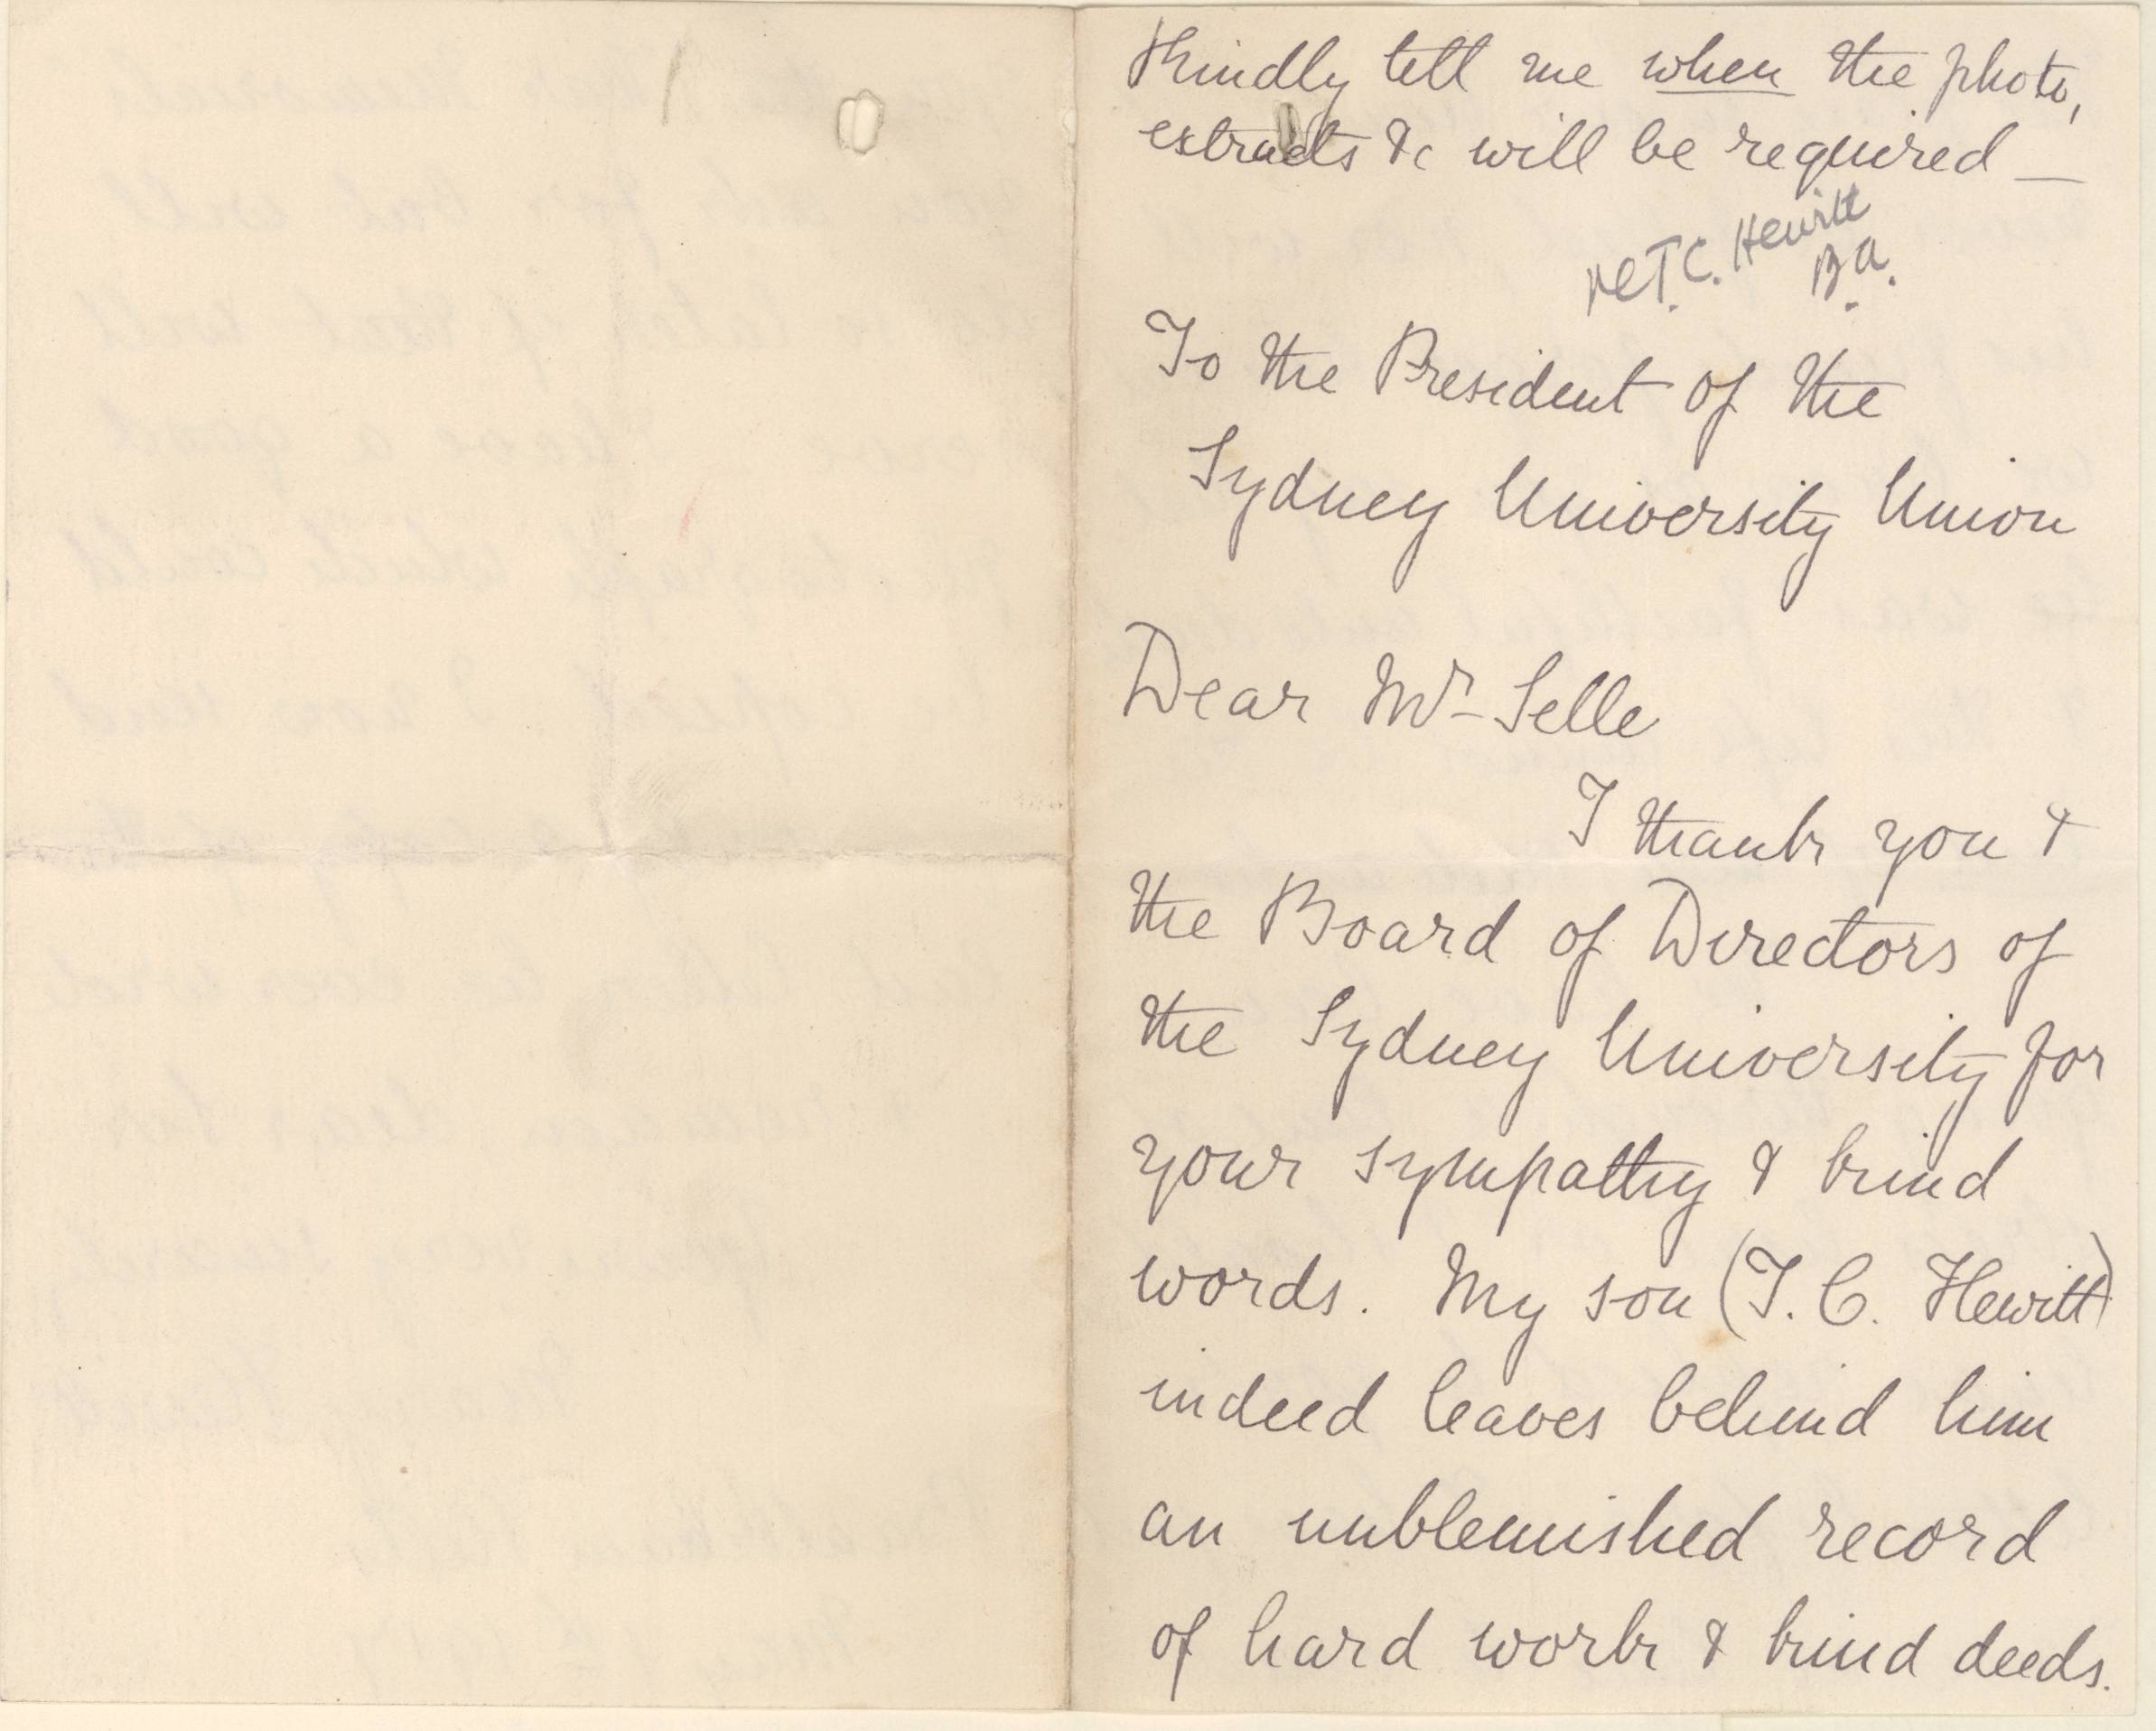 Kindly tell me when the photo,
extracts &c will be required —
re T.C. Hewitt
B.A.
To the President of the
Sydney University Union
Dear Mr Selle
I thank you &
the Board of Directors of
the Sydney University for
your sympathy & kind
words. My son (T. C. Hewitt)
indeed leaves behind him
an unblemished record
of hard work & kind deeds.